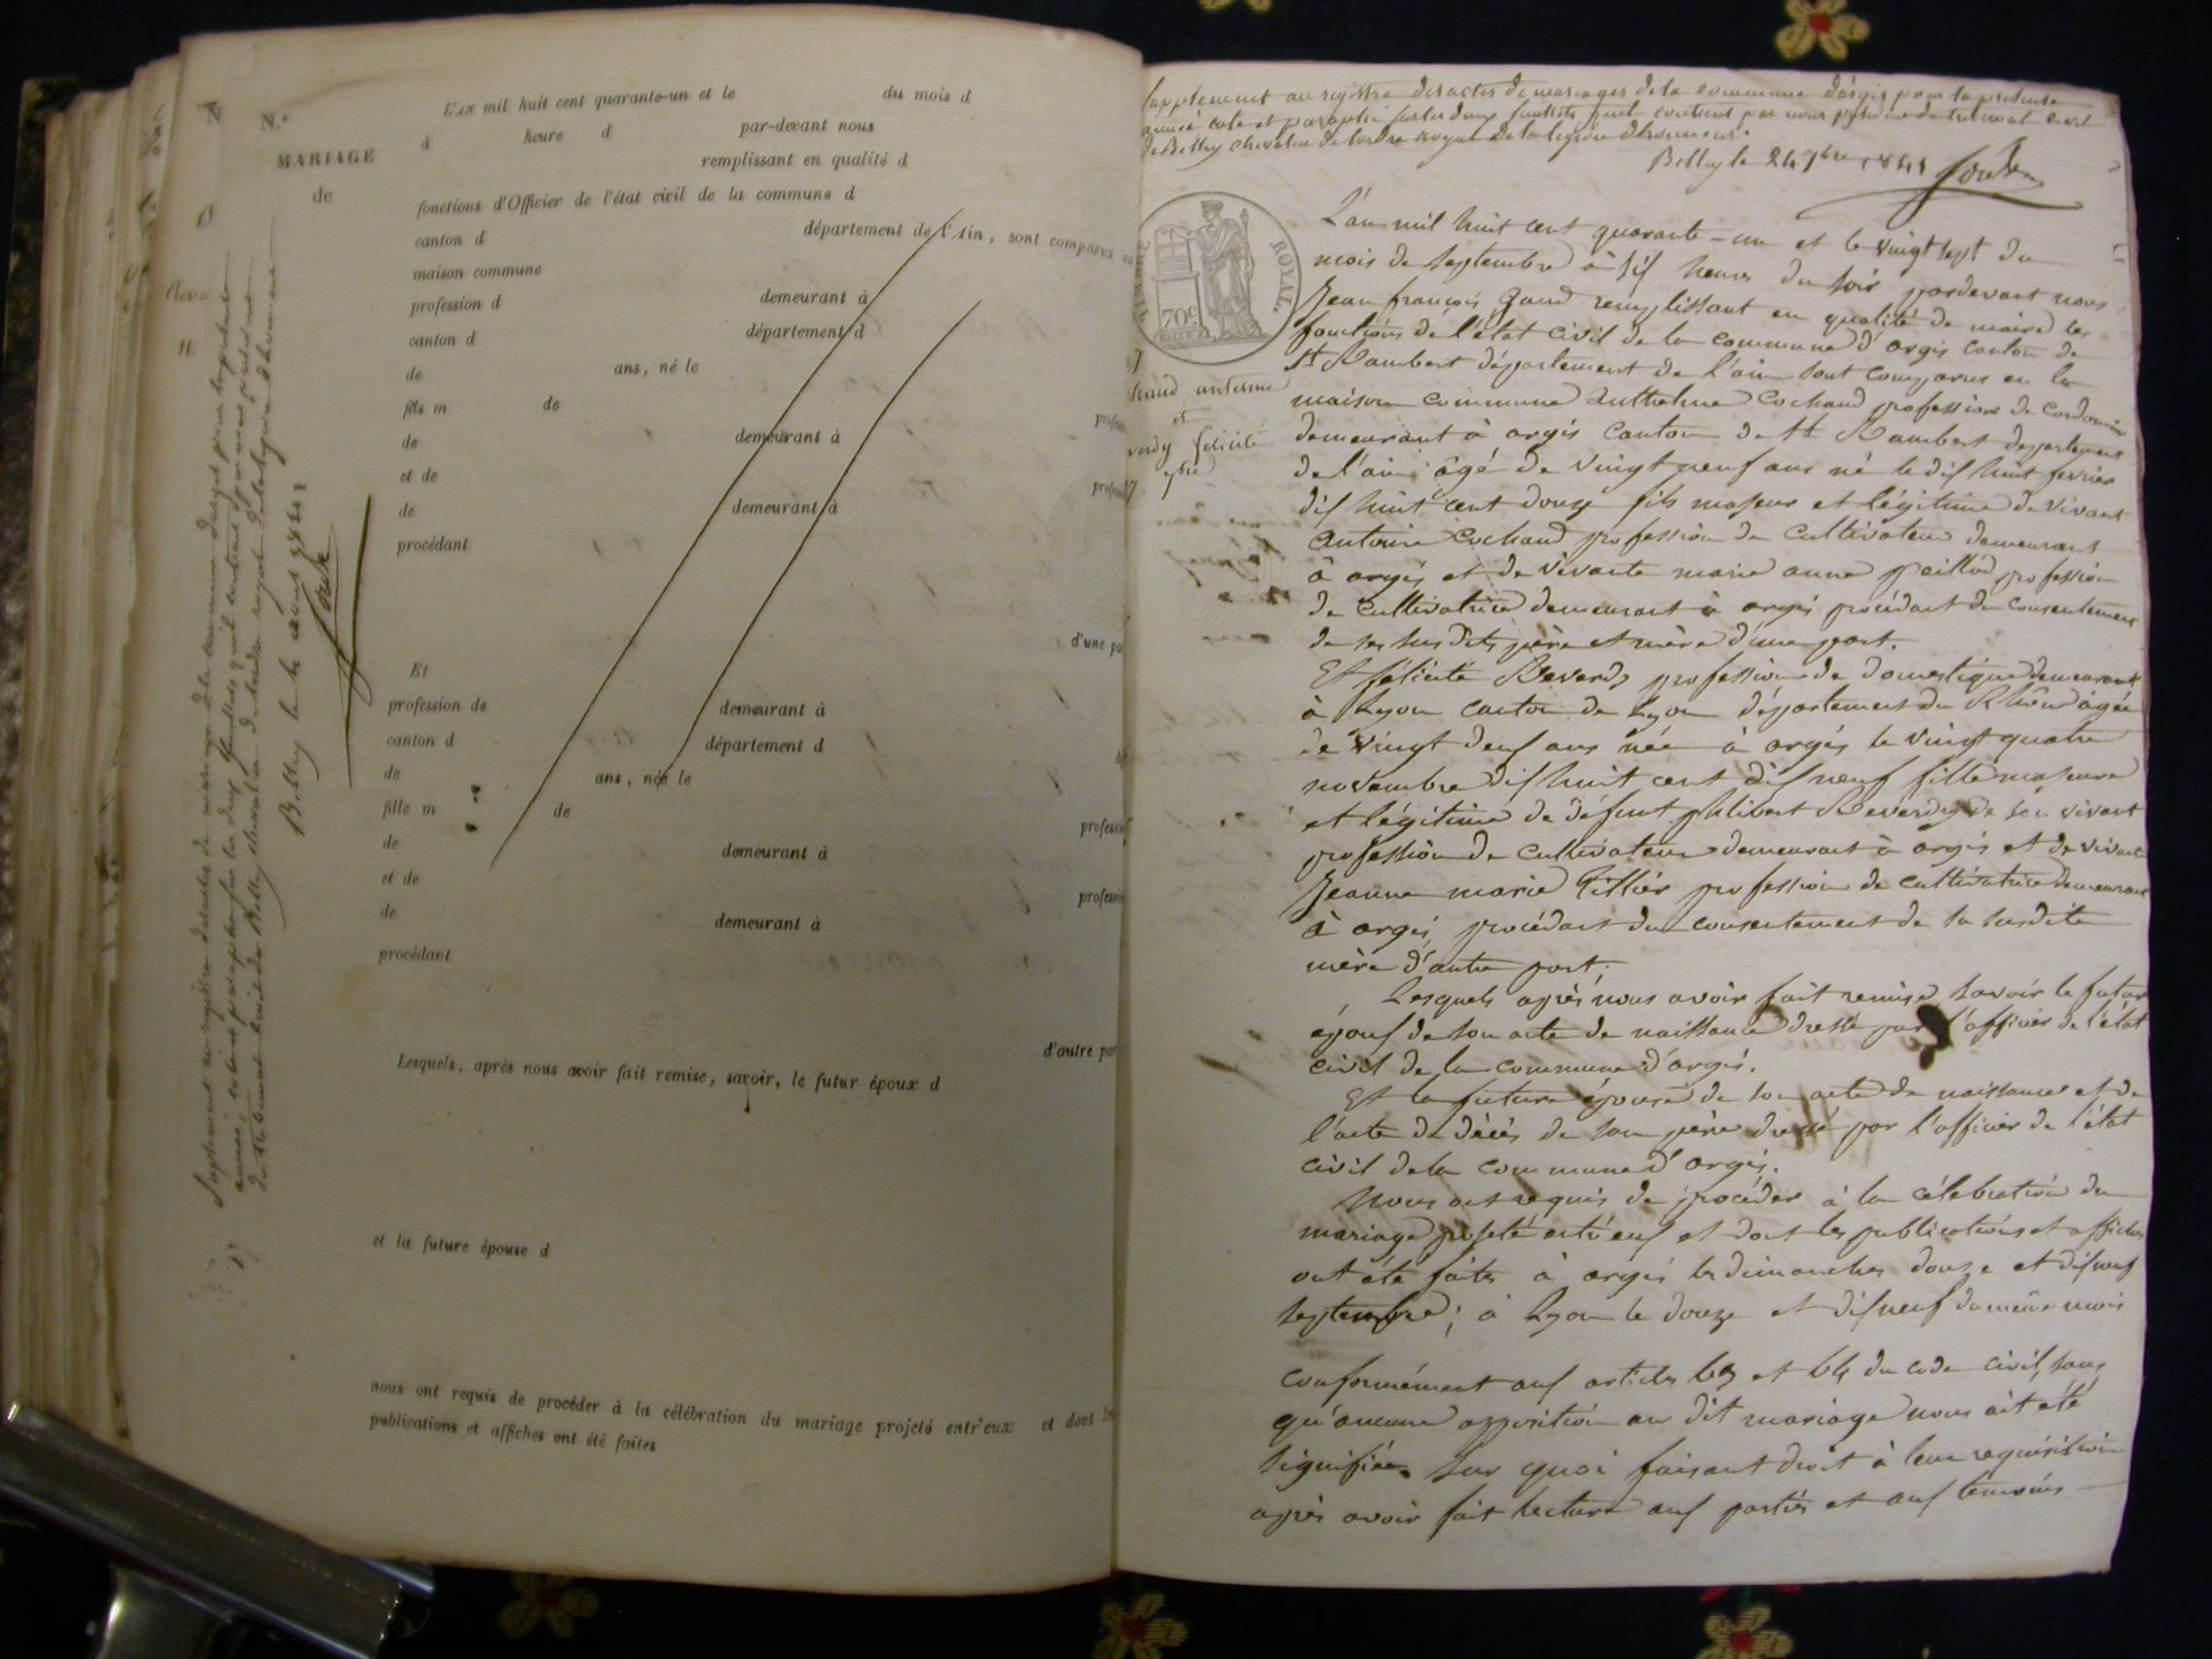 N.º
MARIAGE
de
L'an mil huit cent quarante-un et le du mois d
à heure d par-devant nous
remplissant en qualité d
fonctions d'Officier de l'état civil de la commune d
canton d département de l'Ain, sont comparus en
maison commune
profession d demeurant à
canton d département d
de ans, né le
fils m de
de demeurant à
et de
de demeurant à
procédant
d'une pa
Et
profession de demeurant à
canton d département d
de ans, née le
fille m de
de demeurant à
et de
de demeurant à
procédant
d'autre par
Lesquels, après nous avoir fait remise, savoir, le futur époux d
et la future épouse d
nous ont requis de procéder à la célébration du mariage projeté entr'eux et dont les
publications et affiches ont été faites
Supplement au registre des actes de mariages de la commune d'argis pour la présente
année coté et paraphé sur les deux feuillets qu'il contient par nous président du tribunal civil
de Belley chevalier de l'ordre royal de la légion d'honneur
Belley le 24 7bre 1841
TIMBRE ROYAL
70c
haud antelme
et
verdy felicité
L'an mil huit cent quarante-un et le vingt sept du
mois de Septembre à six heures du soir pardevant nous
Jean françois Gaud remplissant en qualité de maire les
fonctions de l'état civil de la commune d'argis canton de
St Rambert département de l'ain sont comparus en la
maison commune Anthelme Cochaud profession de Cordonnier
demeurant à argis Canton de St Rambert departement
de l'ain âgé de vingt neuf ans né le dix huit fevrier
dix huit cent douze fils majeur et légitime de vivant
Antoine Cochaud profession de Cultivateur demeurant
à argis et de vivante marie anne peillod profession
de cultivatrice demeurant à argis procédant du consentement
de ses susdits père et mère d'une part.
Et félicité Reverdy profession de domestique demeurant
à Lyon canton de Lyon département du Rhône âgée
de vingt deux ans née à argis le vingt quatre
novembre dix huit cent dix neuf fille majeure
et légitime de défunt philibert Reverdy de son vivant
profession de Cultivateur demeurant à argis et de vivante
Jeanne marie Tillier profession de cultivatrice demeurant
à argis, procédant du consentement de sa susdite
mère d'autre part.
Lesquels après nous avoir fait remise savoir le futur
époux de son acte de naissance dressé par l'officier de l'état
civil de la commune d'argis.
Et la future épouse de son acte de naissance et de
l'acte de décès de son père dressé par l'officier de l'état
civil de la commune d'argis.
Nous ont requis de procéder à la célébration du
mariage projeté entr'eux et dont les publications et affiches
ont été faites à argis les dimanches douze et dix neuf
septembre; à Lyon le douze et dix neuf du même mois
conformément aux articles 63 et 64 du code civil, sans
qu'aucune opposition au dit mariage nous ait été
signifiée. Sur quoi faisant droit à leur requisition
après avoir fait lecture aux parties et aux temoins